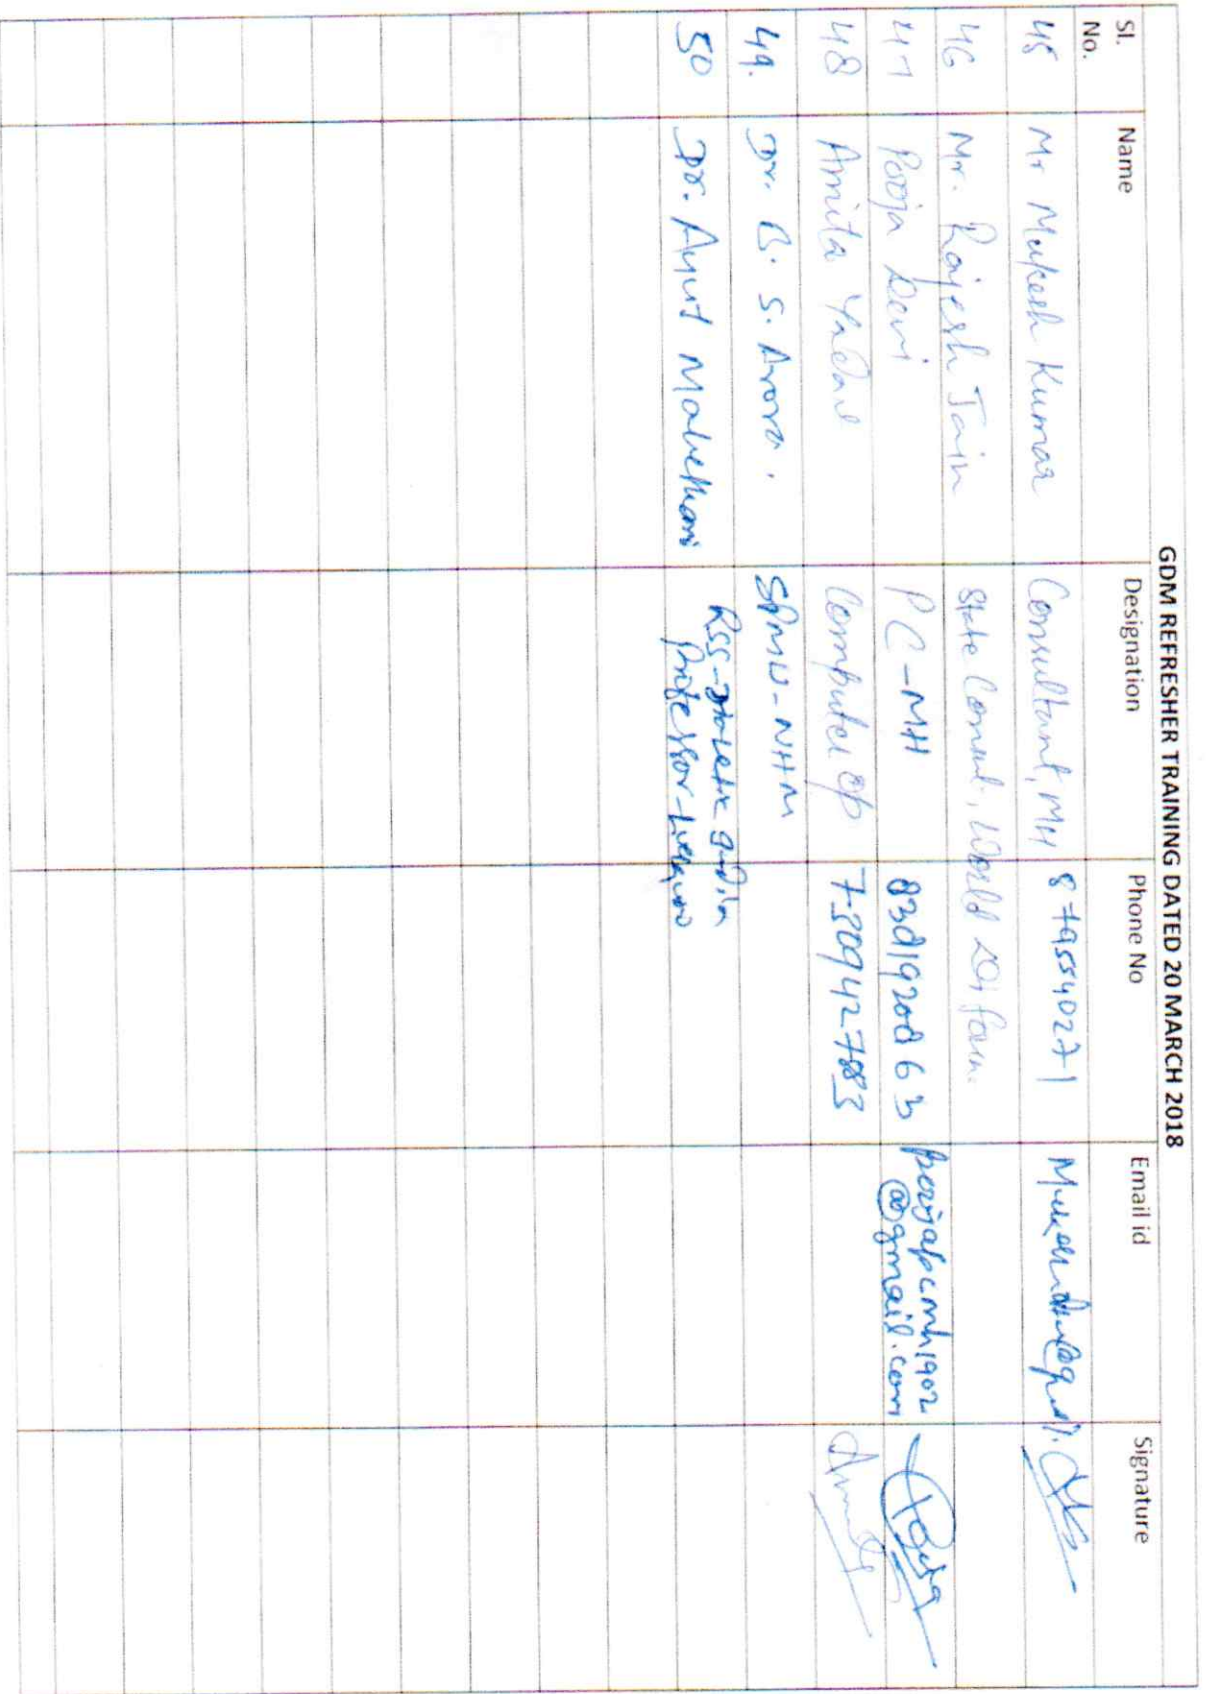 GDM REFRESHER TRAINING DATED 20 MARCH 2018
Sl. No. Name Designation Phone No Email id Signature
45 Mr Mukesh Kumar Consultant, MH 8795540271
46 Mr. Rajesh Jain State Consul., World
47 Pooja Devi PC-MH poojapcmh1902
@gmail.com Pooja
48 Amita Yadav Computer op 7309427883
49. Dr. B. S. Arora. SPMU-NHM
50 Dr. Amit
RSS-
Professor-